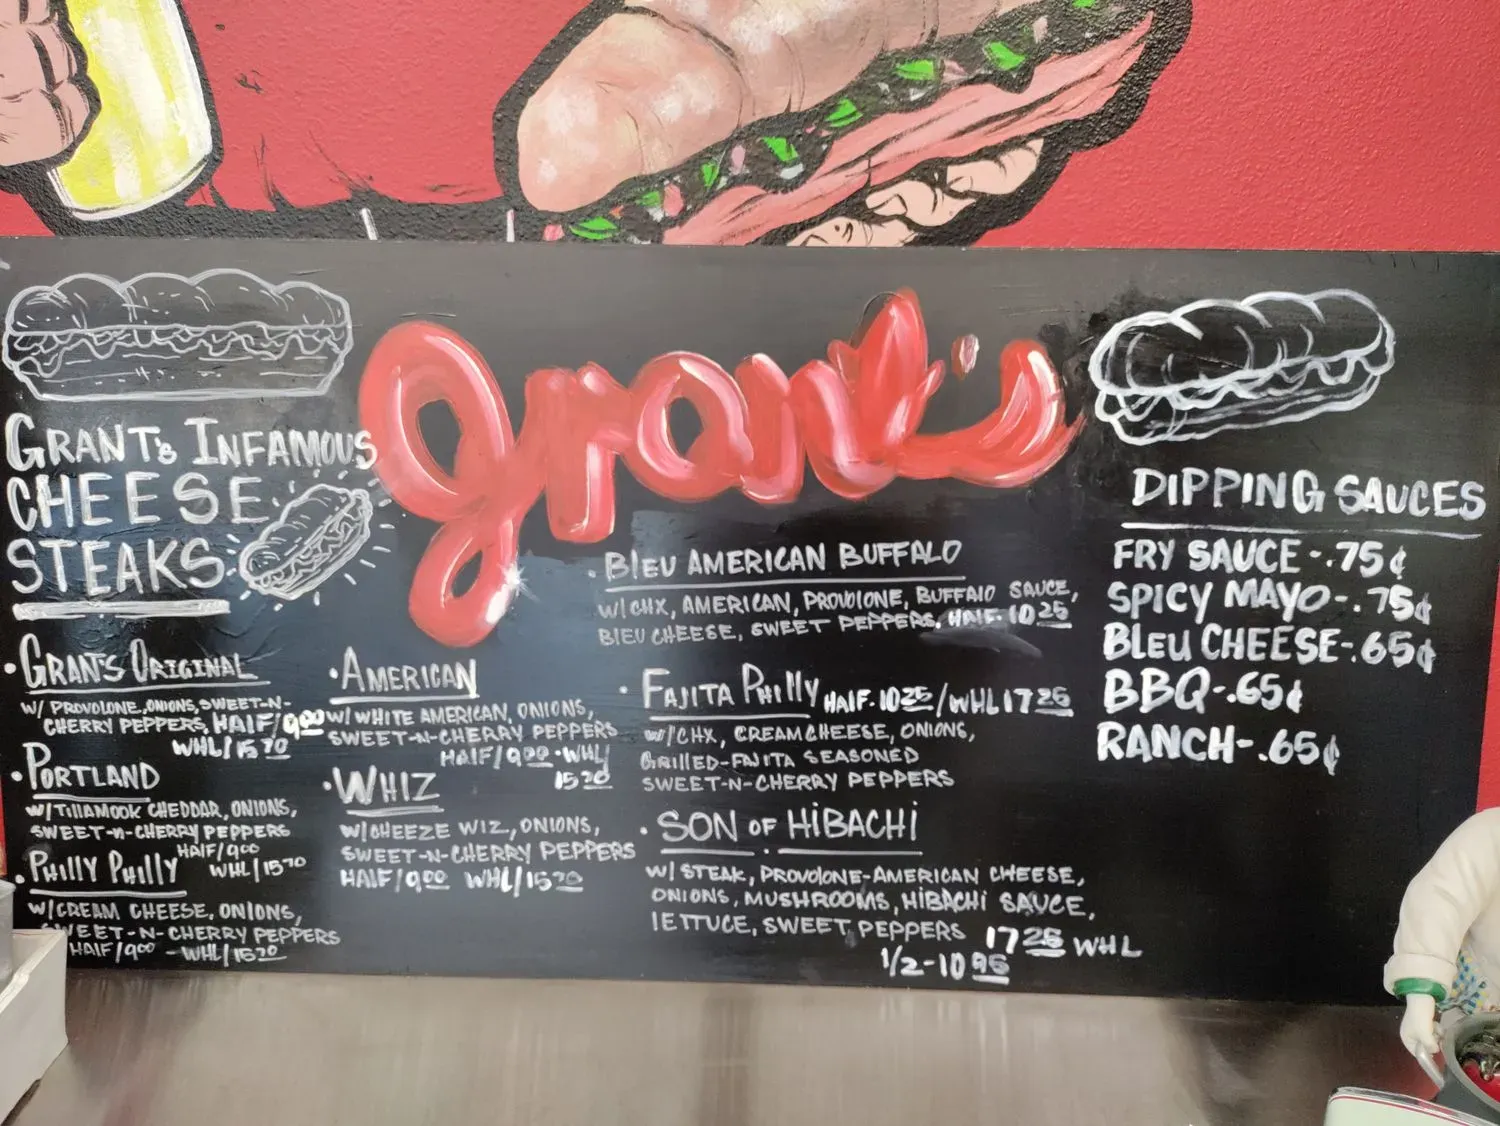 grant's
GRANT'S INFAMOUS
CHEESE
STEAKS
• GRANT'S ORIGINAL
W/ PROVOLONE, ONIONS, SWEET-N-
CHERRY PEPPERS, HALF/9.00
WHL/15.70
• PORTLAND
W/TILLAMOOK CHEDDAR, ONIONS,
SWEET-N-CHERRY PEPPERS
HALF/9.00
WHL/15.70
• PHILLY PHILLY
W/CREAM CHEESE, ONIONS,
SWEET-N-CHERRY PEPPERS
HALF/9.00 - WHL/15.70
• AMERICAN
W/WHITE AMERICAN, ONIONS,
SWEET-N-CHERRY PEPPERS
HALF/9.00 • WHL/
15.70
• WHIZ
W/CHEEZE WIZ, ONIONS,
SWEET-N-CHERRY PEPPERS
HALF/9.00 WHL/15.70
• BLEU AMERICAN BUFFALO
W/CHX, AMERICAN, PROVOLONE, BUFFALO SAUCE,
BLEU CHEESE, SWEET PEPPERS, HALF. 10 25
• FAJITA PHILLY HALF. 10 25 / WHL 17 25
W/CHX, CREAM CHEESE, ONIONS,
GRILLED-FAJITA SEASONED
SWEET-N-CHERRY PEPPERS
• SON OF HIBACHI
W/STEAK, PROVOLONE-AMERICAN CHEESE,
ONIONS, MUSHROOMS, HIBACHI SAUCE,
LETTUCE, SWEET PEPPERS 17 25 WHL
1/2-10 95
DIPPING SAUCES
FRY SAUCE -.75¢
SPICY MAYO-.75¢
BLEU CHEESE-.65¢
BBQ-.65¢
RANCH-.65¢